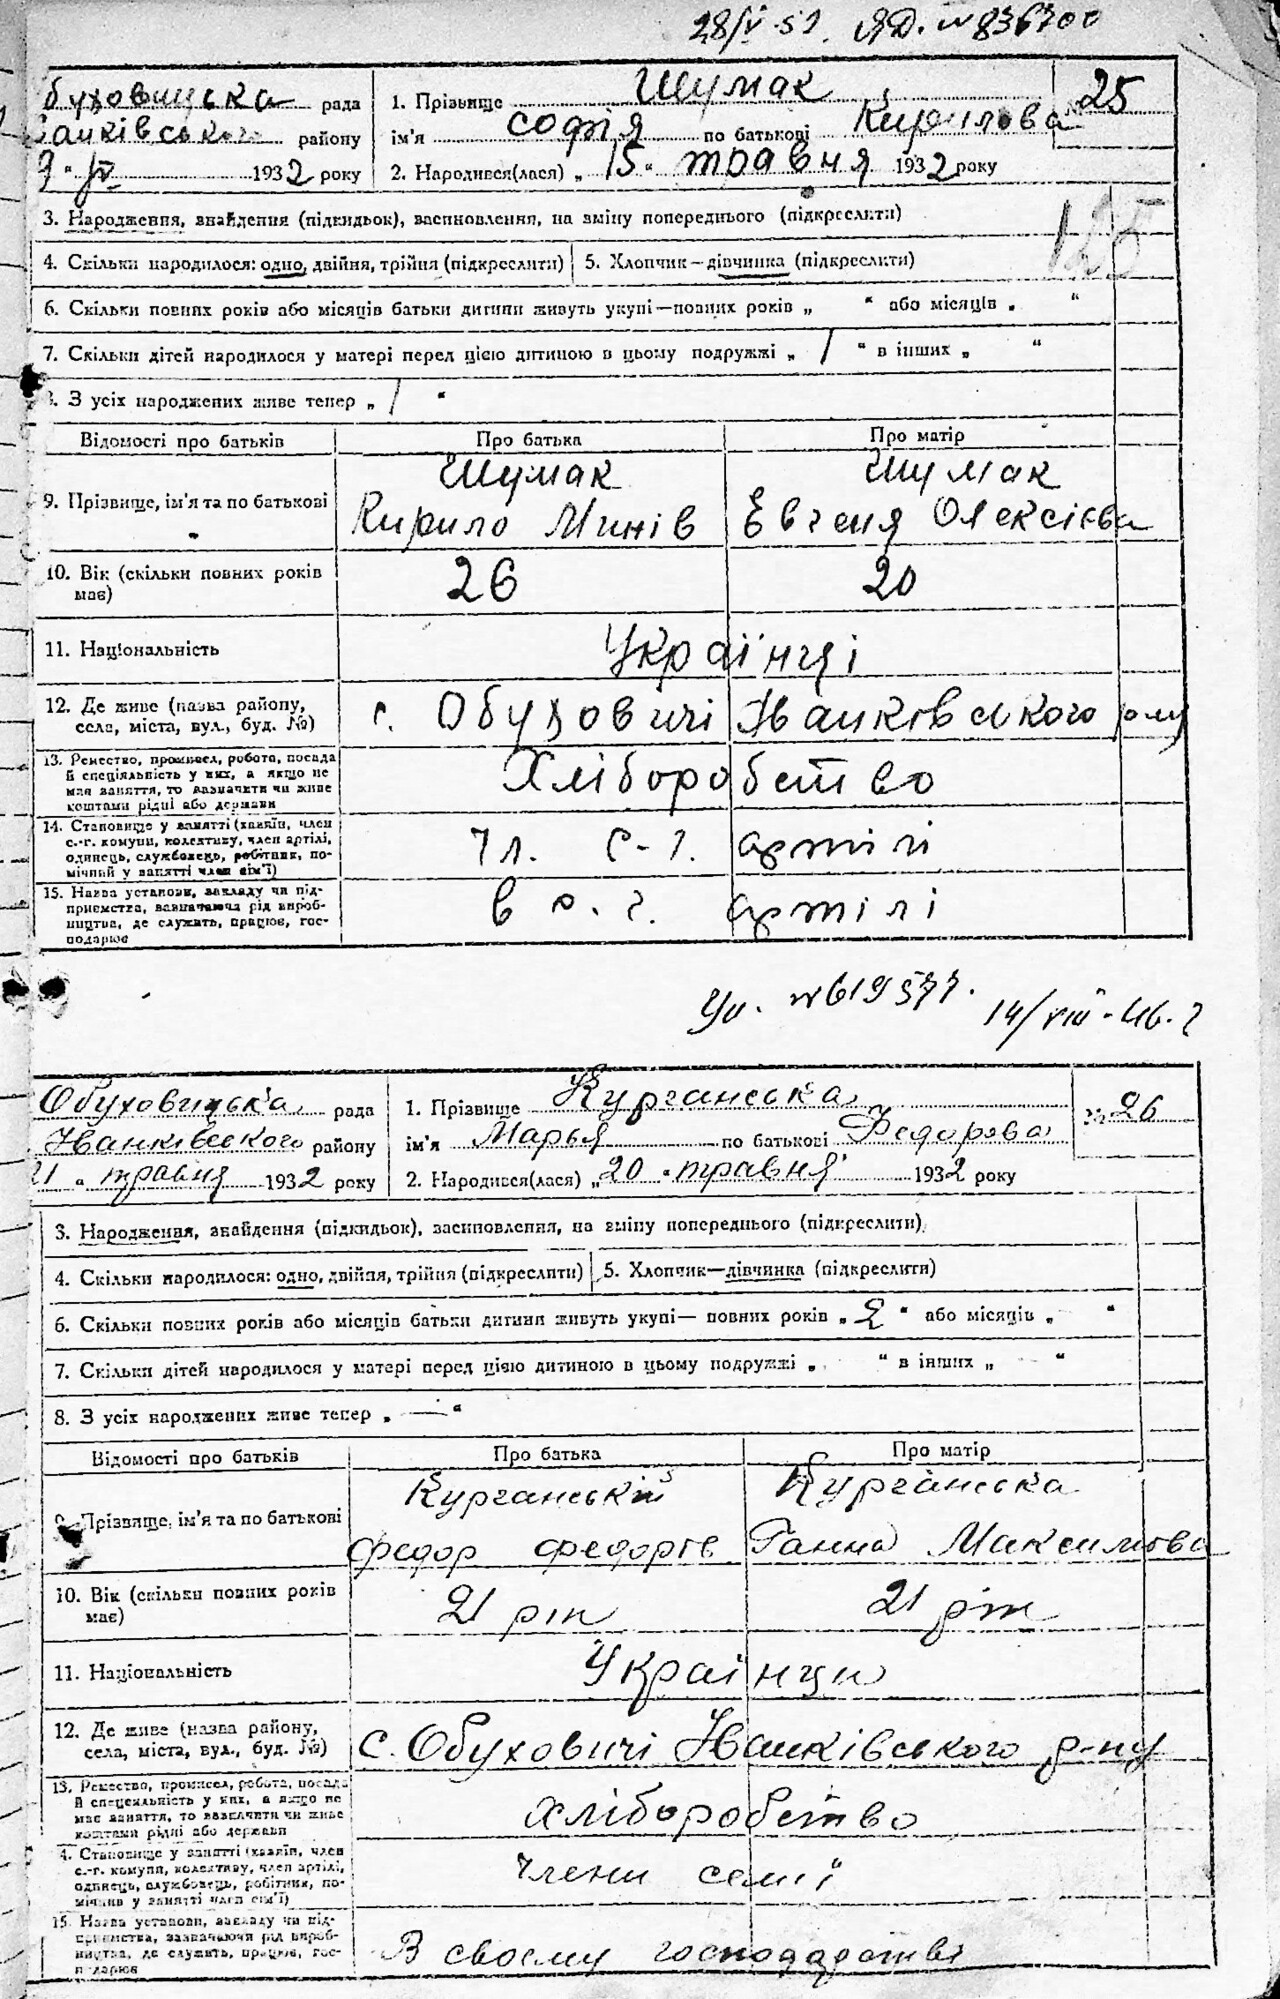 28/V-51. ЯД. № 836700
буховицька рада
Іванківського району
1932 року
1. Прізвище Шумак
ім'я Софія по батькові Кирилова
2. Народився(лася) „15" травня 1932 року
25
125
3. Народження, знайдення (підкидьок), засиновлення, на зміну попереднього (підкреслити)
4. Скільки народилося: одно, двійня, трійня (підкреслити)
5. Хлопчик—дівчинка (підкреслити)
6. Скільки повних років або місяців батьки дитини живуть укупі—повних років „ " або місяців „ "
7. Скільки дітей народилося у матері перед цією дитиною в цьому подружжі „ / " в інших „ "
8. З усіх народжених живе тепер „ / "
Відомості про батьків Про батька Про матір
9. Прізвище, ім'я та по батькові
Шумак Кирило Минів
Шумак Евгенія Олексієва
10. Вік (скільки повних років має) 26 20
11. Національність Українці
12. Де живе (назва району, села, міста, вул., буд. №) с. Обуховичі Іванківського р-ну
13. Ремество, промисел, робота, посада й спеціяльність у них, а якщо не має заняття, то зазначити чи живе коштами рідні або держави
Хліборобство
14. Становище у занятті (хазяїн, член с.-г. комуни, колективу, член артілі, одинець, службовець, робітник, помічний у занятті член сім'ї)
чл. с-г. артілі
15. Назва установи, закладу чи підприємства, зазначаючи рід виробництва, де служить, працює, господарює
в с.-г. артілі
№ 619577. 14/VIII-46.г
Обуховицька рада
Іванківського району
21 " травня 1932 року
1. Прізвище Курганська
ім'я Марья по батькові Федорова
2. Народився(лася) „20" травня 1932 року
№ 26
3. Народження, знайдення (підкидьок), засиновлення, на зміну попереднього (підкреслити)
4. Скільки народилося: одно, двійня, трійня (підкреслити)
5. Хлопчик—дівчинка (підкреслити)
6. Скільки повних років або місяців батьки дитини живуть укупі— повних років „2" або місяців „ "
7. Скільки дітей народилося у матері перед цією дитиною в цьому подружжі „ " в інших „ "
8. З усіх народжених живе тепер „ — "
Відомості про батьків Про батька Про матір
9. Прізвище, ім'я та по батькові
Курганський Федор Федорів
Курганська Ганна Максимова
10. Вік (скільки повних років має) 21 рік 21 рік
11. Національність Українци
12. Де живе (назва району, села, міста, вул., буд. №) с. Обуховичі Іванківського р-ну
13. Ремество, промисел, робота, посада й спеціяльність у них, а якщо не має заняття, то зазначити чи живе коштами рідні або держави
хліборобство
14. Становище у занятті (хазяїн, член с.-г. комуни, колективу, член артілі, одинець, службовець, робітник, помічний у занятті член сім'ї)
члени семії
15. Назва установи, закладу чи підприємства, зазначаючи рід виробництва, де служить, працює, господарює
В своєму господарстві